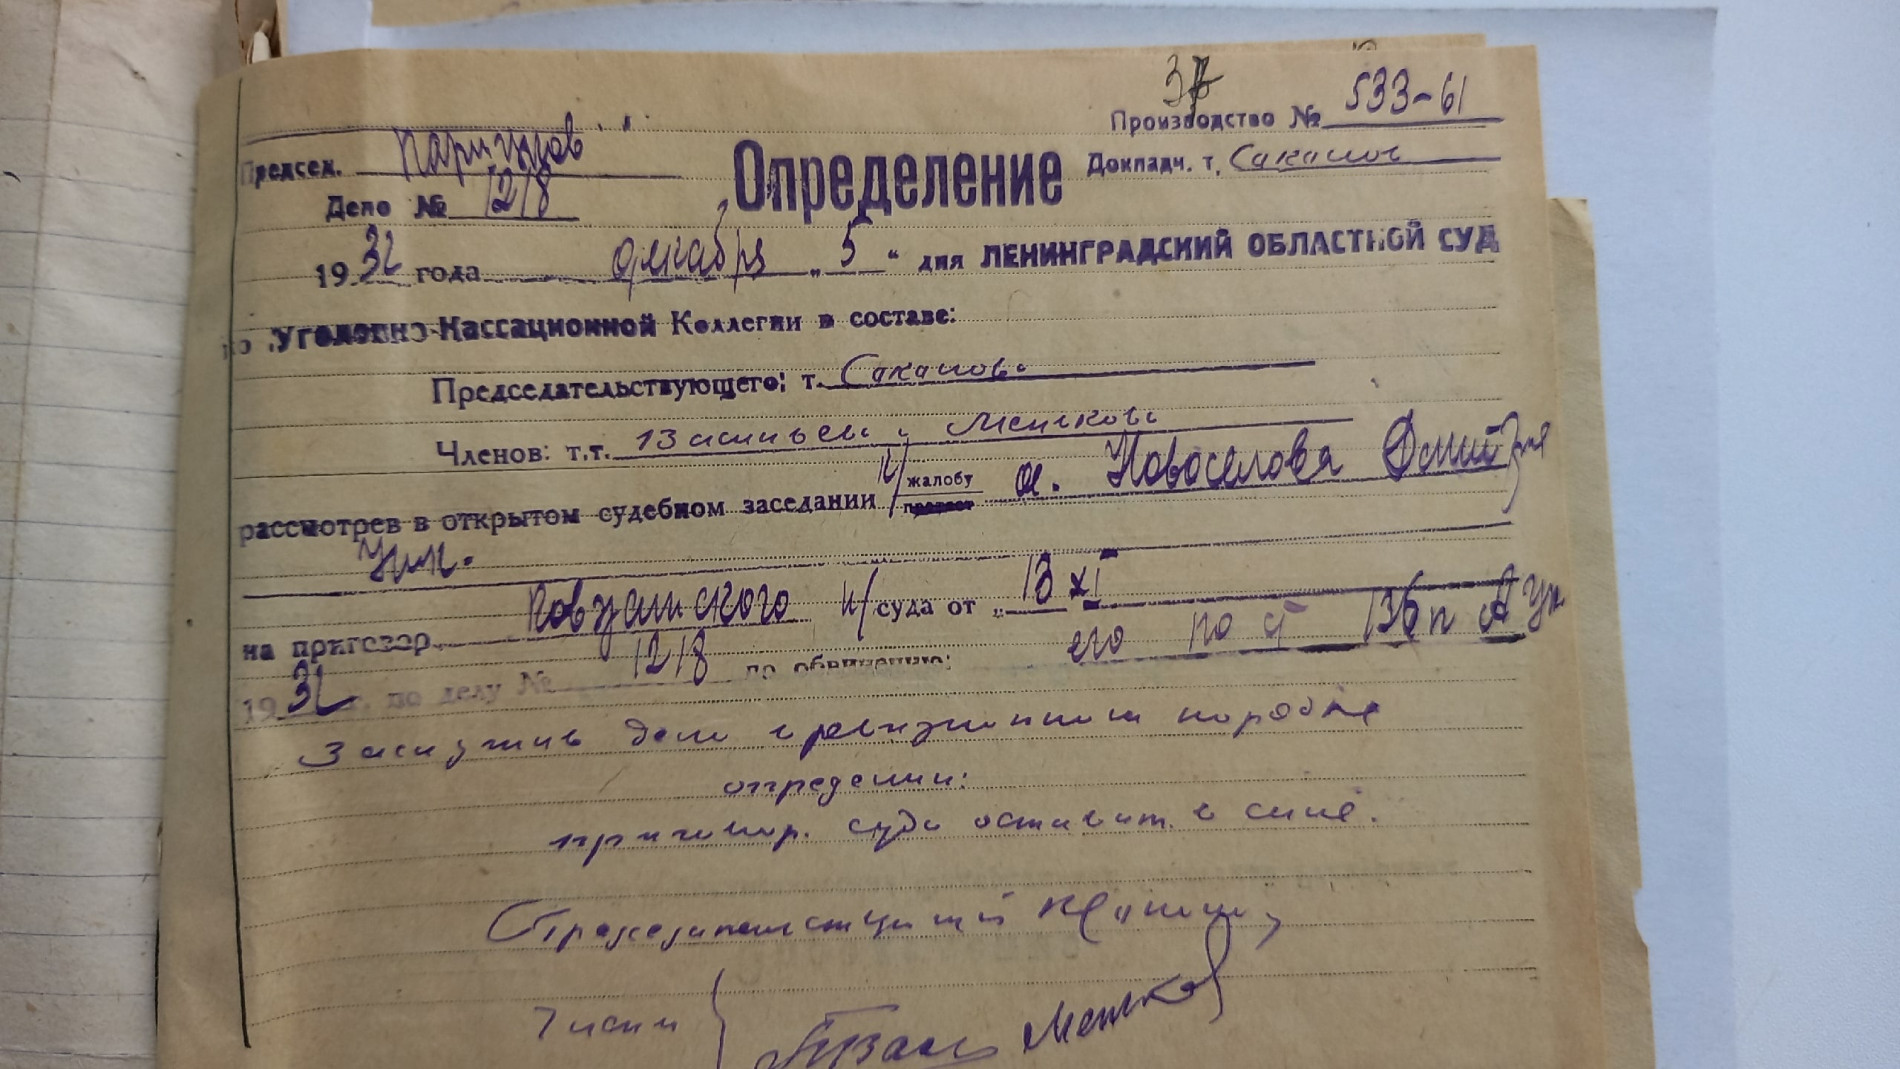 37
Производство № 533-61
Председ. Каргинов
Определение
Докладч. т. Саканов
Дело № 1218
1932 года декабря „5“ дня ЛЕНИНГРАДСКИЙ ОБЛАСТНОЙ СУД
по Уголовно-Кассационной Коллегии в составе:
Председательствующего: т. Саканова
Членов: т.т. Васильева и Мешкова
рассмотрев в открытом судебном заседании к/ жалобу
протест
о. Новоселова Дмитрия
Ник.
на приговор н/суда от „13 XI
1932 г. по делу № 1218 по обвинению: его по ст 136 п А УК
Заслушив дело в ревизионном порядке
определил:
приговор. суда оставит. в силе.
Председательствующий
Члены
Мешков